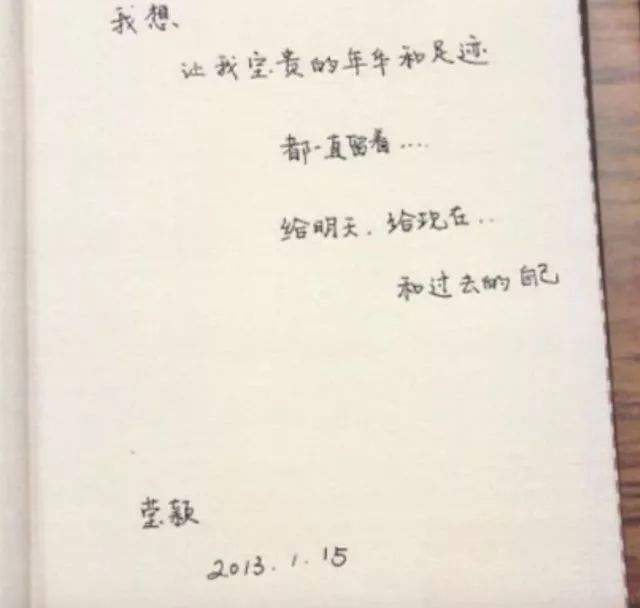 我想、
让我宝贵的年华和足迹
都一直留着....
给明天.给现在..
和过去的自己
莹颖
2013.1.15